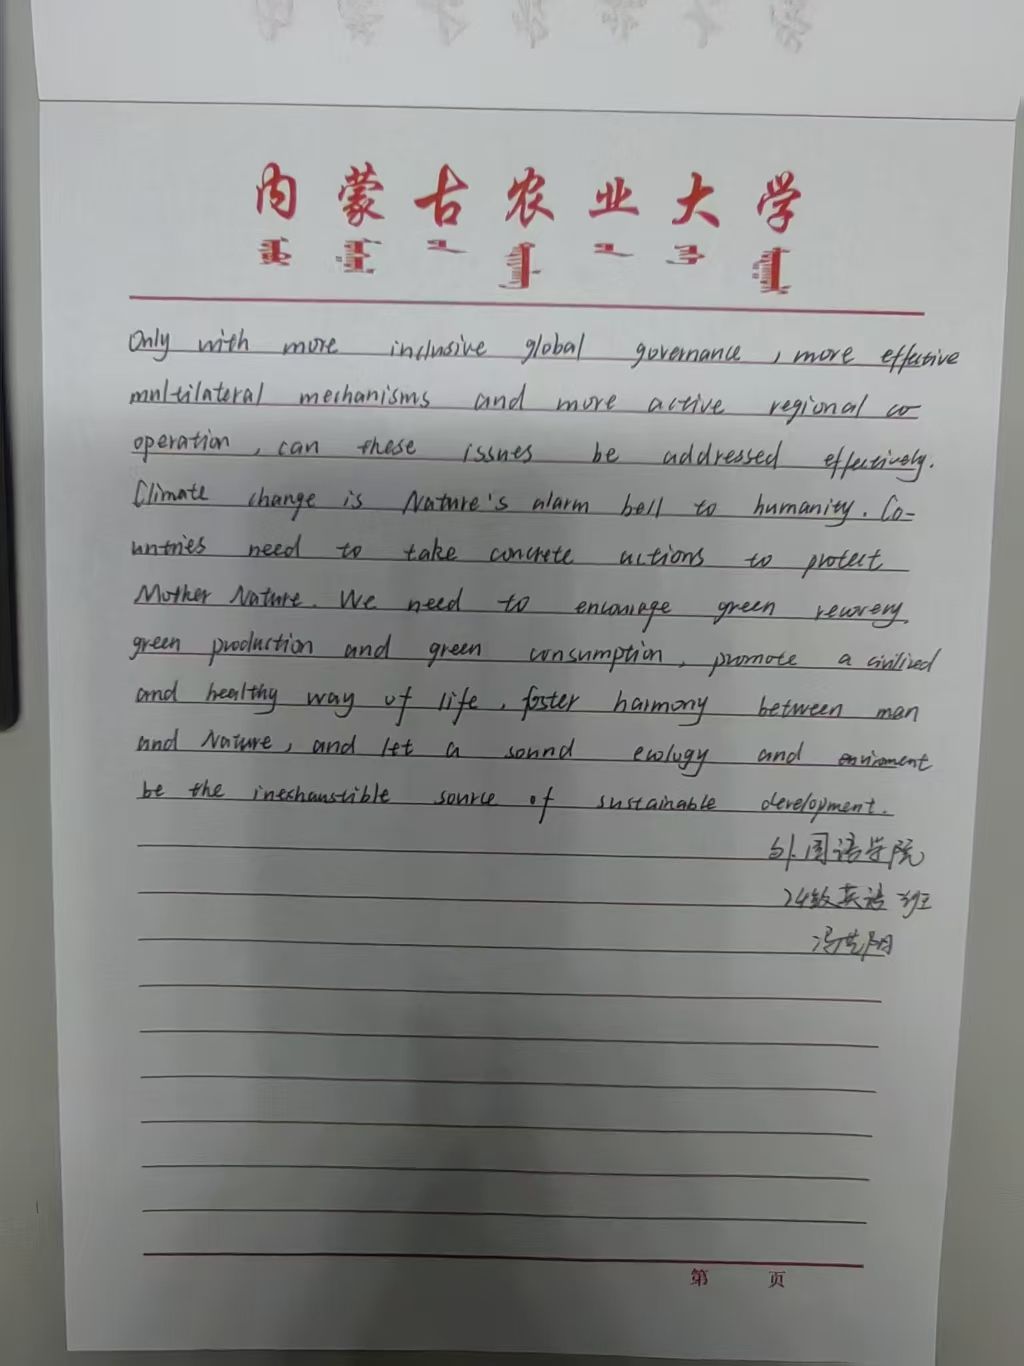 内蒙古农业大学
Only with more inclusive global governance, more effective
multilateral mechanisms and more active regional co
operation, can these issues be addressed effectively.
Climate change is Nature's alarm bell to humanity. Co-
untries need to take concrete actions to protect
Mother Nature. We need to encourage green recovery,
green production and green consumption, promote a civilized
and healthy way of life, foster harmony between man
and Nature, and let a sound ecology and enviroment
be the inexhaustible source of sustainable development.
外国语学院
24级英语班
冯
第 页